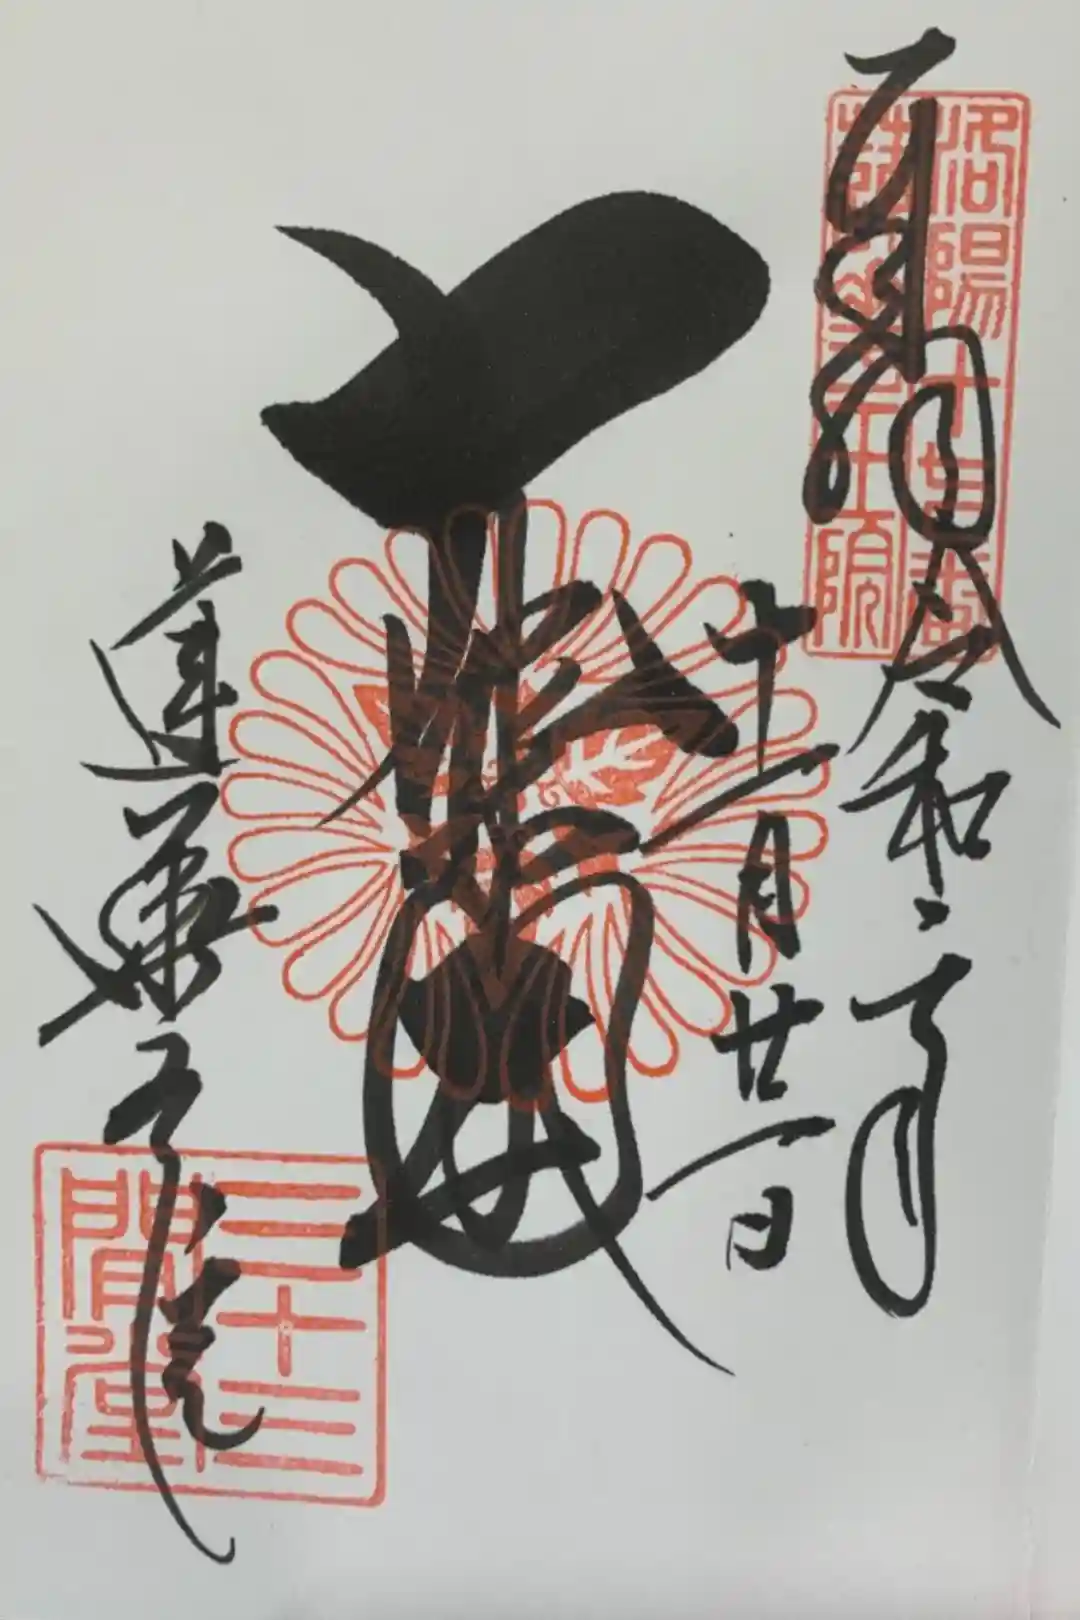 洛陽十七番
蓮華王院
令和二年
十一月廿一日
大悲殿
蓮華王院
三十三
間堂